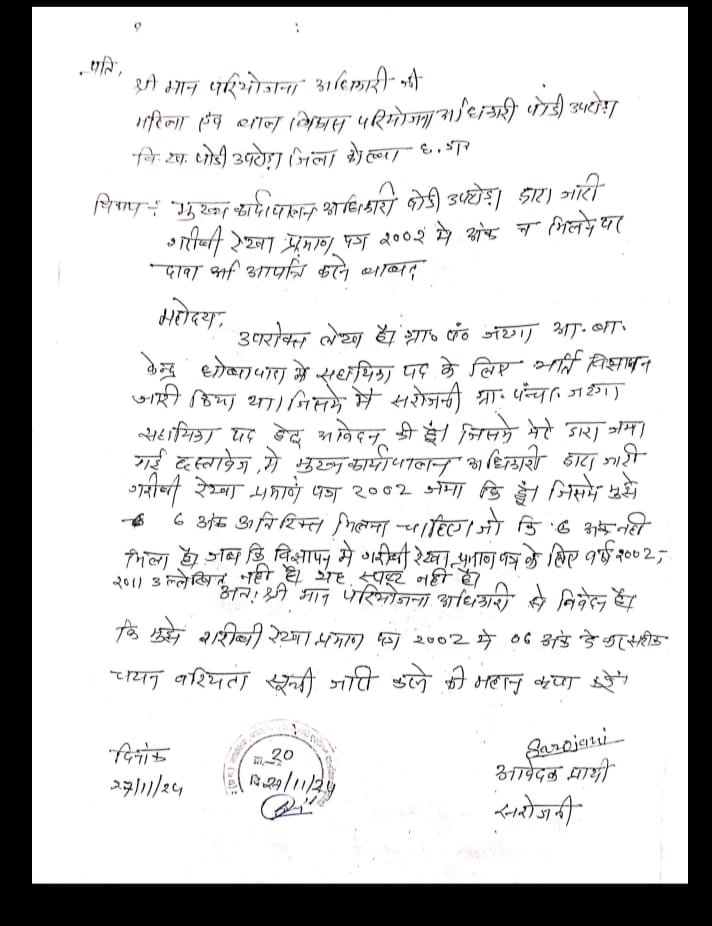 प्रति,
श्री मान परियोजना अधिकारी की
महिला एंव बाल विकास परियोजना अधिकारी पोडी उपरोड़ा
वि.ख. पोडी उपरोड़ा जिला कोरबा छ.ग
विषय :- मुख्य कार्यपालन अधिकारी पोडी उपरोड़ा द्वारा जारी
गरीबी रेखा प्रमाण पत्र 2002 मे अंक न मिलने पर
दावा आपत्ति करने बाबद
महोदय,
उपरोक्त लेख है। ग्रा० पं० जटगा आ. बा.
केन्द्र धोबापारा मे सहायिका पद के लिए भर्ति विज्ञापन
जारी किया था। जिसमे मै सरोजनी ग्रा. पंचा. जटगा
सहायिका पद हेतु आवेदन की हूँ। जिसमे मेरे द्वारा जमा
गई दस्तावेज मे मुख्य कार्यापालन अधिकारी द्वारा जारी
गरीबी रेखा प्रमाण पत्र 2002 जमा कि हूँ। जिसमे मुझे
6 अंक अतिरिक्त मिलना चाहिए। जो कि 6 अंक नही
मिला है। जब कि विज्ञापन मे गरीबी रेखा प्रमाण पत्र के लिए वर्ष 2002-
2011 उल्लेखित नही है। यह स्पष्ट नही है।
अतः श्री मान परियोजना अधिकारी से निवेदन है।
कि मुझे गरीबी रेखा प्रमाण पत्र 2002 मे 06 अंक दे कर सटीक
चयन वरियता सूची जारी करने की महान कृपा करें
दिनांक
27/11/24
20
27/11/24
Sarojani
आवेदक प्रार्थी
सरोजनी